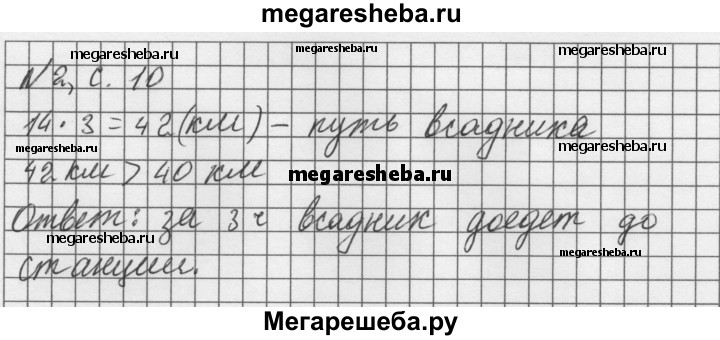 megaresheba.ru
megaresheba.ru megaresheba.ru megaresheba.ru
N2, с. 10
14 · 3 = 42 (км) – путь всадника
megaresheba.ru megaresheba.ru
42 км > 40 км
megaresheba.ru
Ответ: за 3 ч всадник доедет до
megaresheba.ru megaresheba.ru
станции.
Мегарешеба.ру